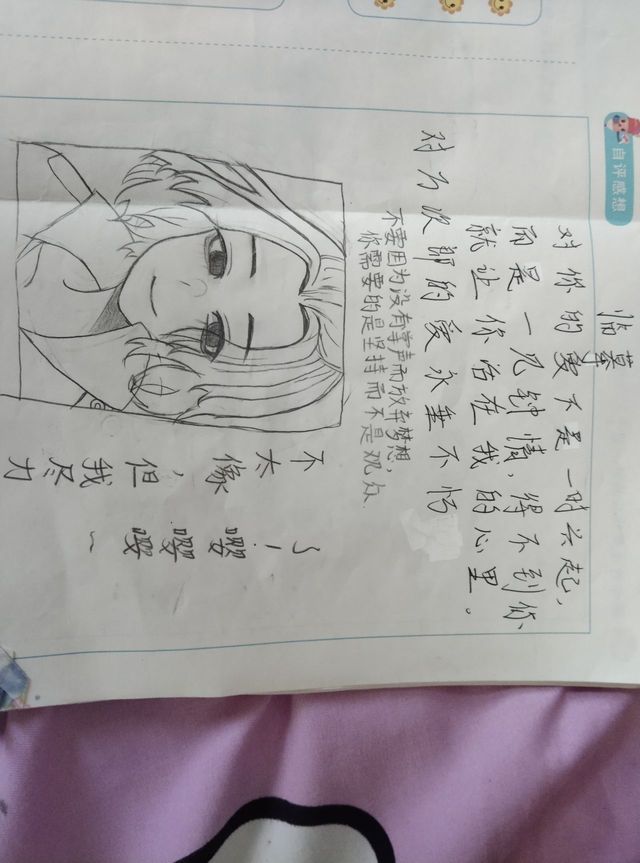 自评感想
临摹
对你的爱不是一时兴起,
而是一见钟情,得不到你、
就让你活在我的心里。
对为次郎的爱永垂不
不要因为没有掌声而放弃梦想,
你需要的是坚持而不是观众.
不太像,但我尽力
了!嘤嘤嘤~